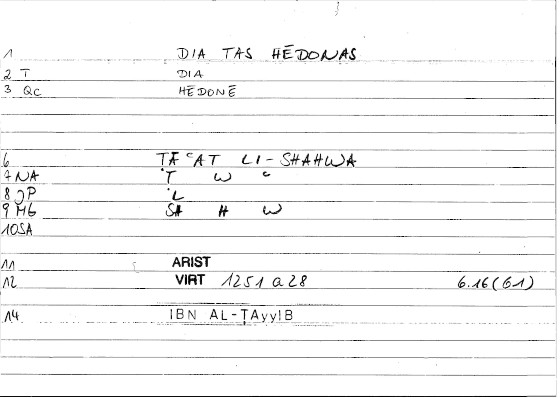 1 DIA TAS HĒDONAS
2 T DIA
3 QC HĒDONĒ
6 ṬĀʿAT LI-SHAHWA
7 NA Ṭ W ʿ
8 JP ʾL
9 MG SH H W
10 SA
11 ARIST
12 VIRT 1251 a 28 6.16 (61)
14 IBN AL-ṬAyyIB